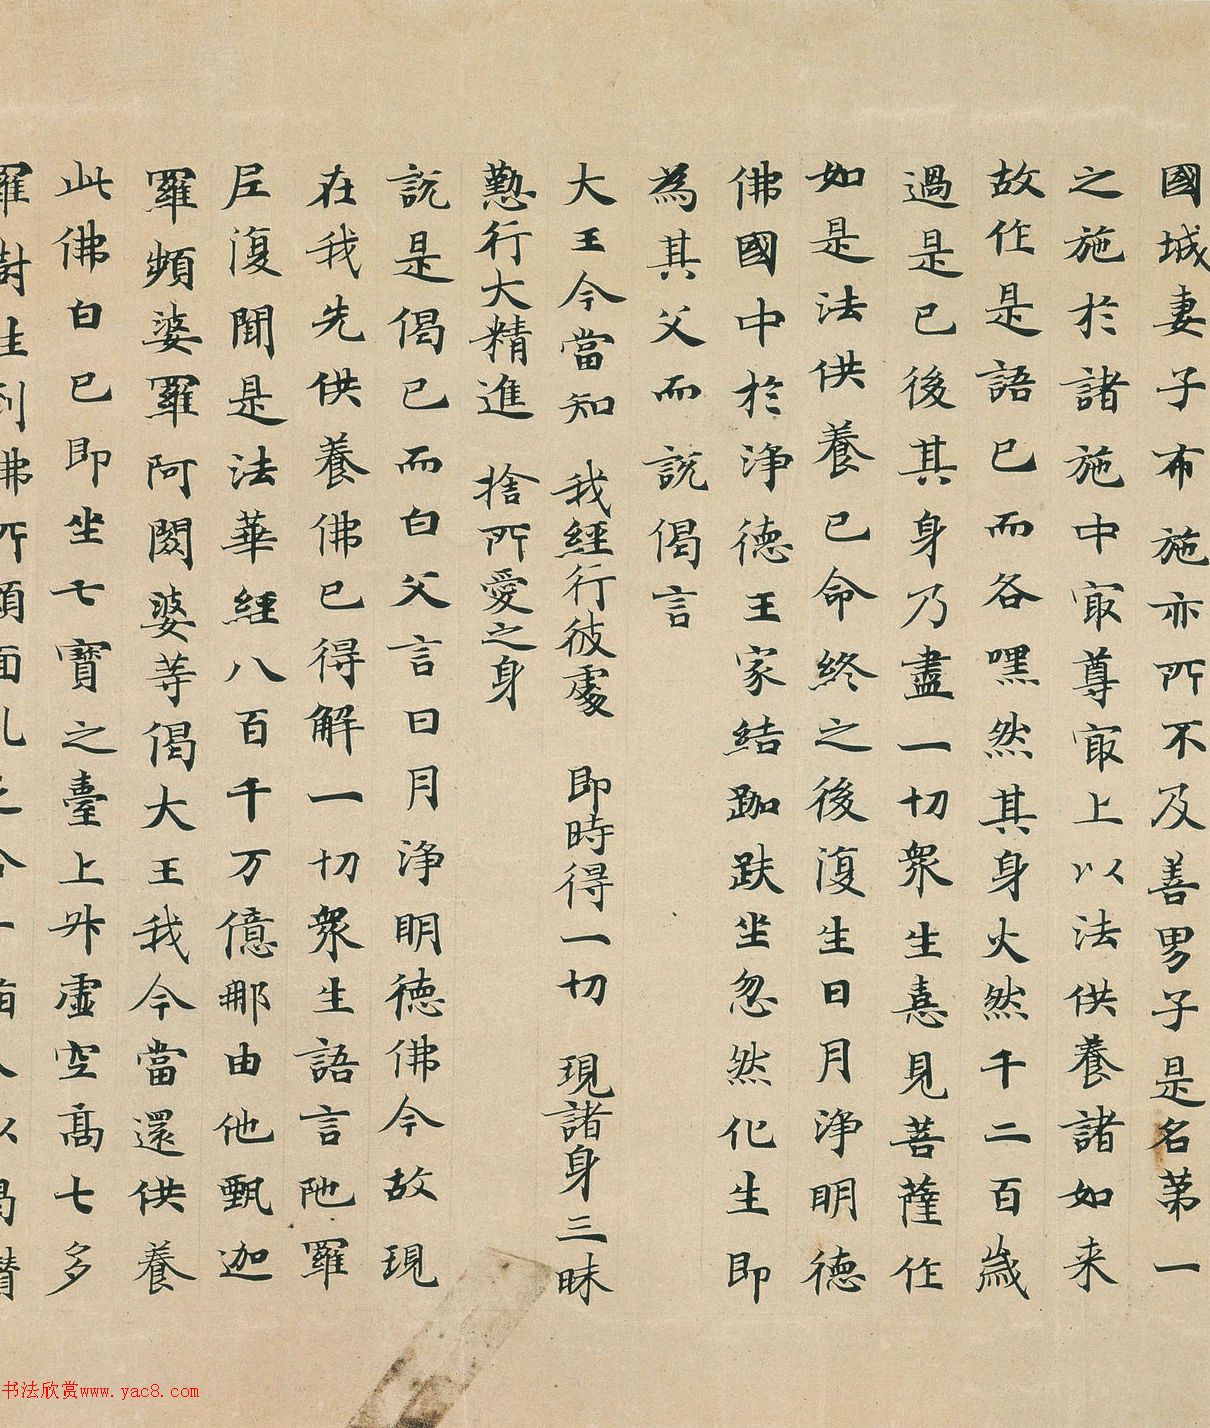 國城妻子布施亦所不及善男子是名第一
之施於諸施中冣尊冣上以法供養諸如来
故作是語已而各嘿然其身火然千二百歲
過是已後其身乃盡一切衆生憙見菩薩作
如是法供養已命終之後復生日月淨明德
佛國中於淨德王家結跏趺坐忽然化生即
為其父而說偈言
大王今當知 我經行彼處 即時得一切 現諸身三昧
懃行大精進 捨所愛之身
說是偈已而白父言日月淨明德佛今故現
在我先供養佛已得解一切衆生語言陁羅
尼復聞是法華經八百千万億那由他甄迦
羅頻婆羅阿閦婆等偈大王我今當還供養
此佛白已即坐七寶之臺上昇虛空高七多
羅樹往到佛所頭面礼足合十指爪以偈讃
书法欣赏www.yac8.com